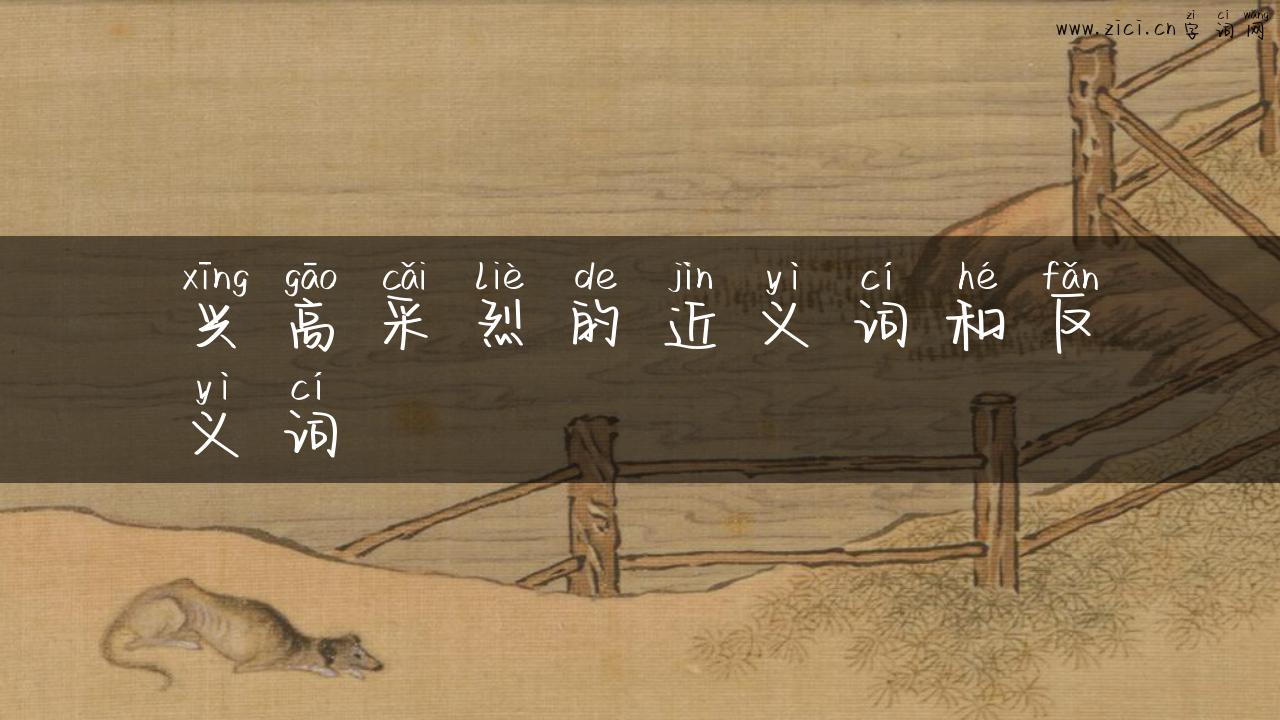 zì cí wǎng
www.zici.cn 字词网
xīng gāo cǎi liè de jìn yì cí hé fǎn
兴高采烈的近义词和反
yì cí
义词